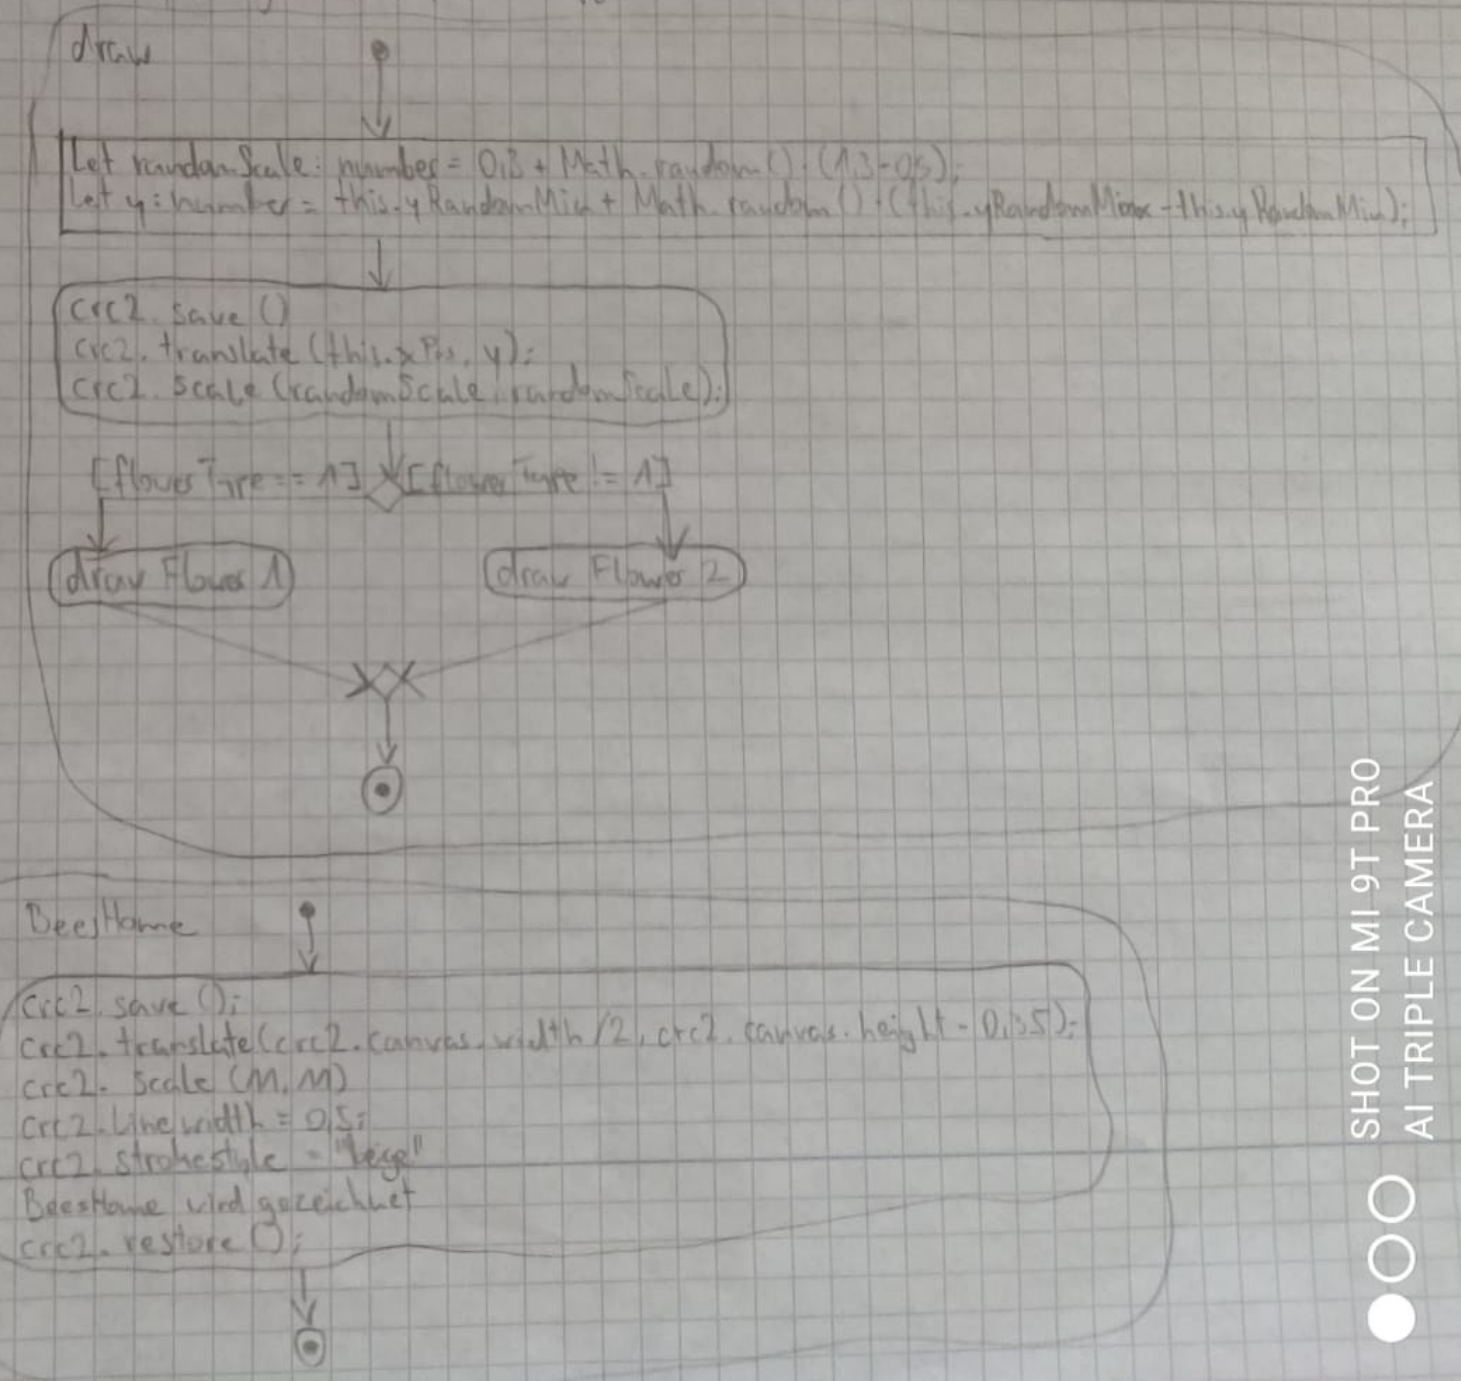 draw
Let randomScale: number = 0,8 + Math.random() · (1,3-0,5);
Let y: number = this.yRandomMin + Math.random() · (this.yRandomMax - this.yRandomMin);
crc2. save ()
crc2. translate (this.xPos, y);
crc2. scale (randomScale, randomScale);
[flowerType == 1] [flowerType != 1]
draw Flower 1 draw Flower 2
BeesHome
crc2. save ();
crc2. translate (crc2.canvas.width /2, crc2. canvas. height - 0,35);
crc2. Scale (M, M)
crc2. Linewidth = 0,5;
crc2. strokestyle = "beige"
BeesHome wird gezeichnet
crc2. restore ();
SHOT ON MI 9T PRO
AI TRIPLE CAMERA